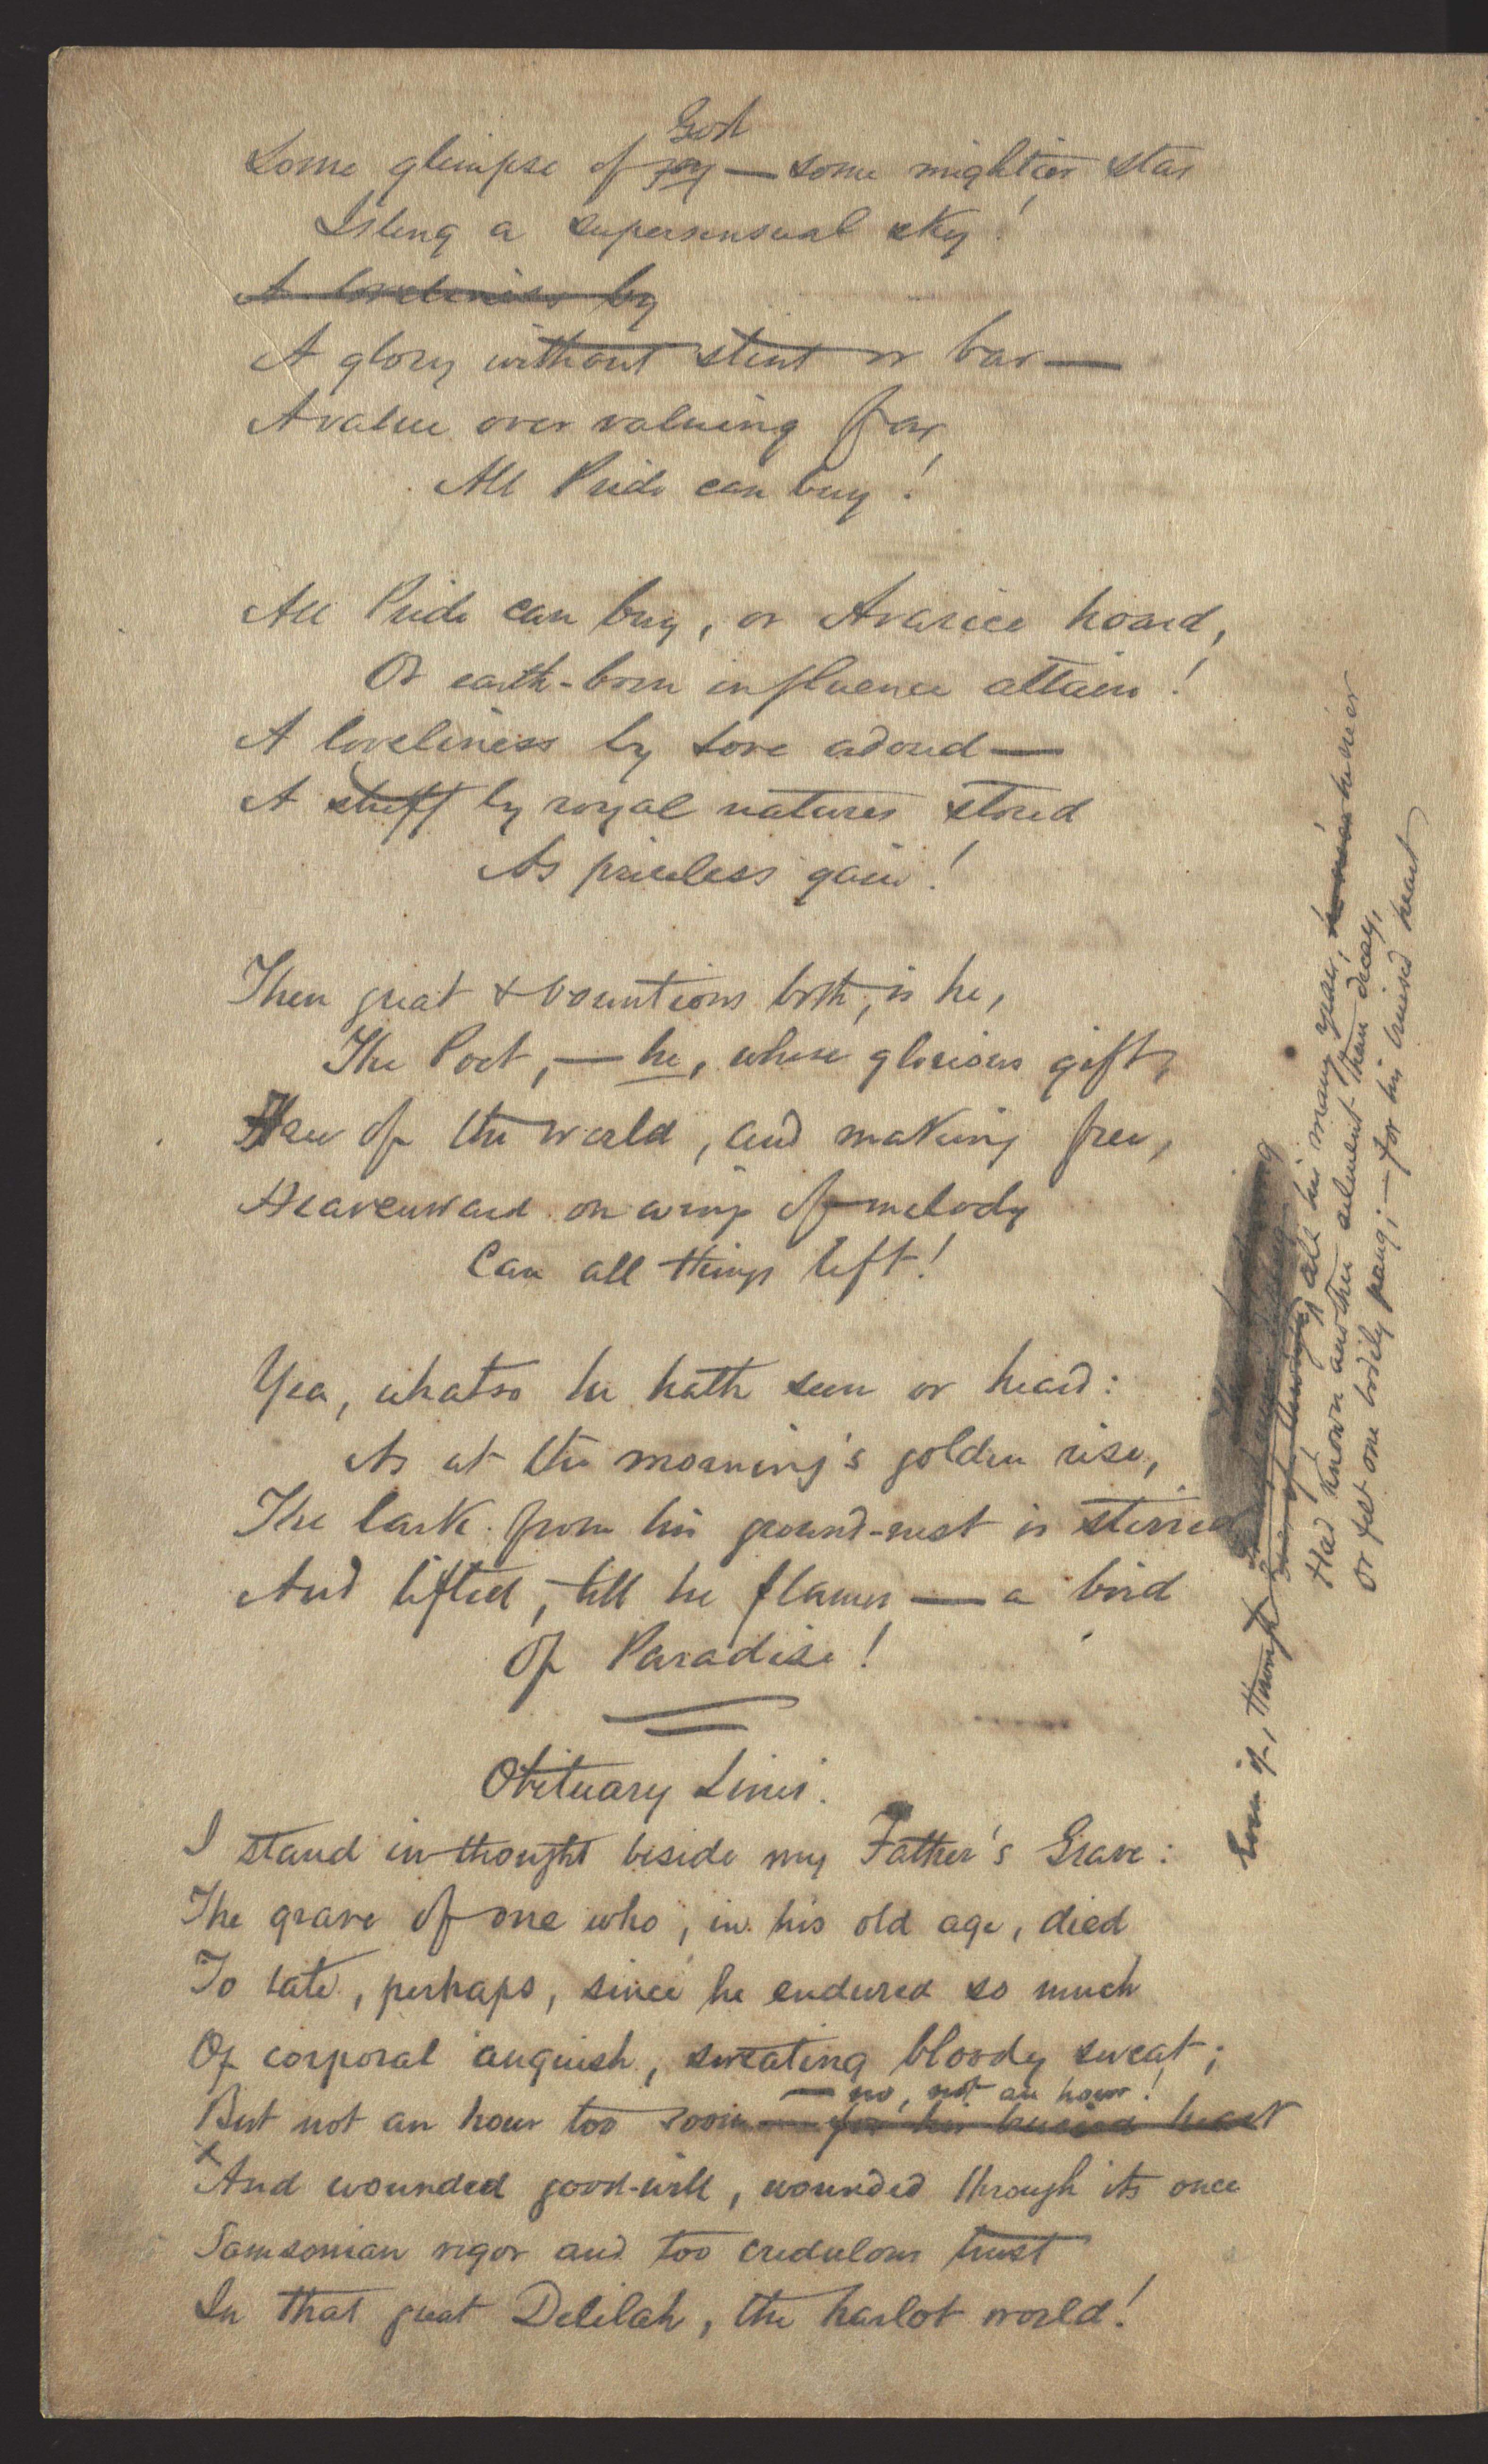 God
Some glimpse of joy — some mightier star
Isling a supersensual sky!
A loveliness by
A glory without stint or bar —
A value over valuing far,
All Pride can buy!
All Pride can buy, or Avarice hoard,
Or earth-born influence attain!
A loveliness by Love adored —
A stuff by royal natures stored
As priceless gain!
Then great & bounteous both, is he,
The Poet, — he, whose glorious gift,
Free of the world, and making free,
Heavenward on wings of melody
Can all things lift!
Yea, whatso he hath seen or heard:
As at the morning's golden rise,
The lark from his ground-nest is stirred
And lifted, till he flames — a bird
Of Paradise!
Obituary Lines.
I stand in thought beside my Father's Grave:
The grave of one who, in his old age, died
To late, perhaps, since he endured so much
Of corporal anguish, sweating bloody sweat;
— no, not an hour!
But not an hour too soon — for his bruised heart
x
And wounded good-will, wounded through its once
Samsonian vigor and too credulous trust
In that great Delilah, the harlot world!
Even if, through all his many years, he never
Had known another ailment than decay,
Or felt one bodily pang; — for his bruised heart